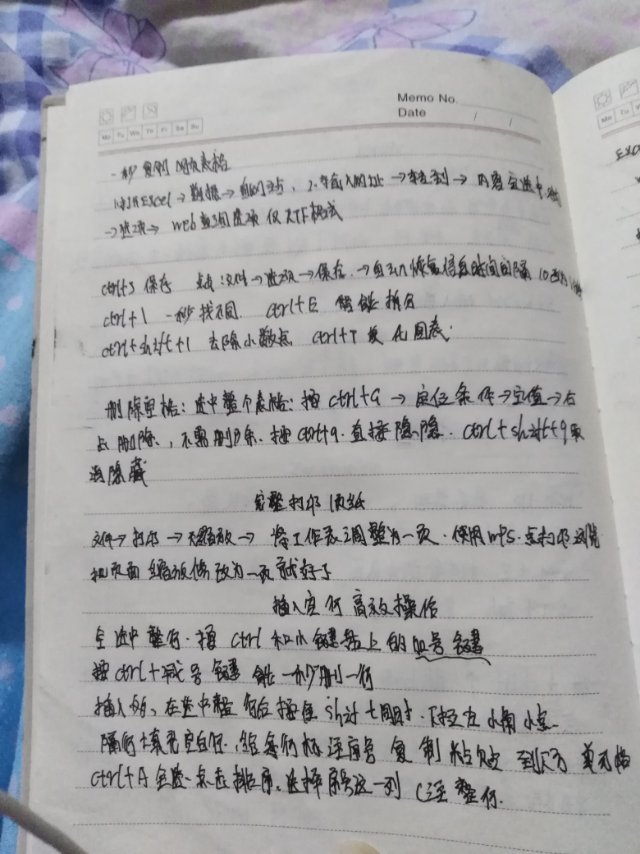 Memo No.
Date / /
Mo Tu We Th Fr Sa Su
一秒复制网页表格
打开Excel→数据→自网站，2.导输入网址→转到→内容全选中
→选项→web查询选项仅RTF格式
ctrl+s 保存 点：文件→选项→保存→自动恢复信息时间间隔 10
ctrl+1 一秒找不同 ctrl+E 智能拆分
ctrl+shift+1 去除小数点 ctrl+T 美化图表.
删除空格：选中整个表格：按ctrl+G→定位条件→空值→右
点删除，不需删除. 按ctrl+9. 直接隐. ctrl+shift+9取
消隐藏
完整打印1页纸
文件→打印→无缩放→将工作表调整为一页. 使用wps. 点打印预览
把页面缩放修改为一页就好了
插入空行高效操作
全选中整行. 按ctrl和小键盘上的加号键
按ctrl+减号键能一秒删一行
插入多行, 在选中整行后按住shift 下拉
隔行填充空白行. 给每行标注序号 复制粘贴到下方单元格
ctrl+A全选. 点击排序. 选择序号这一列 整行.